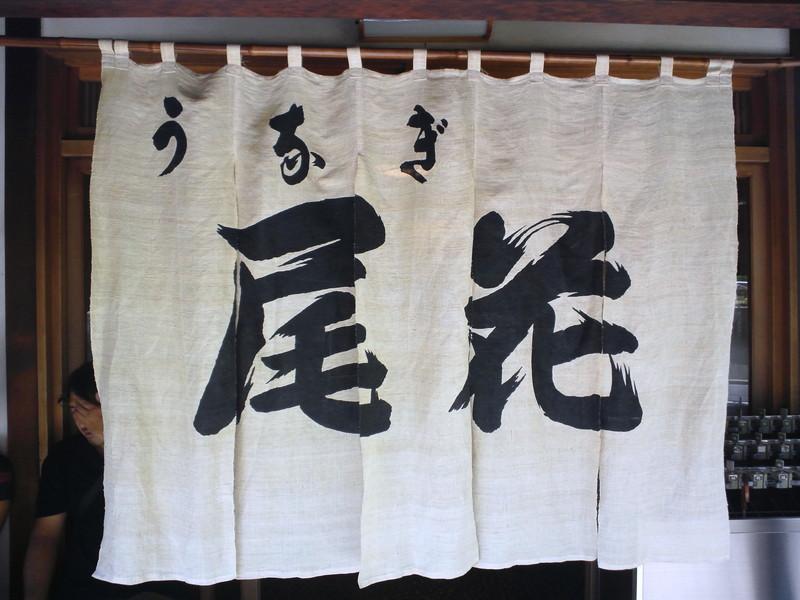 うなぎ
尾花